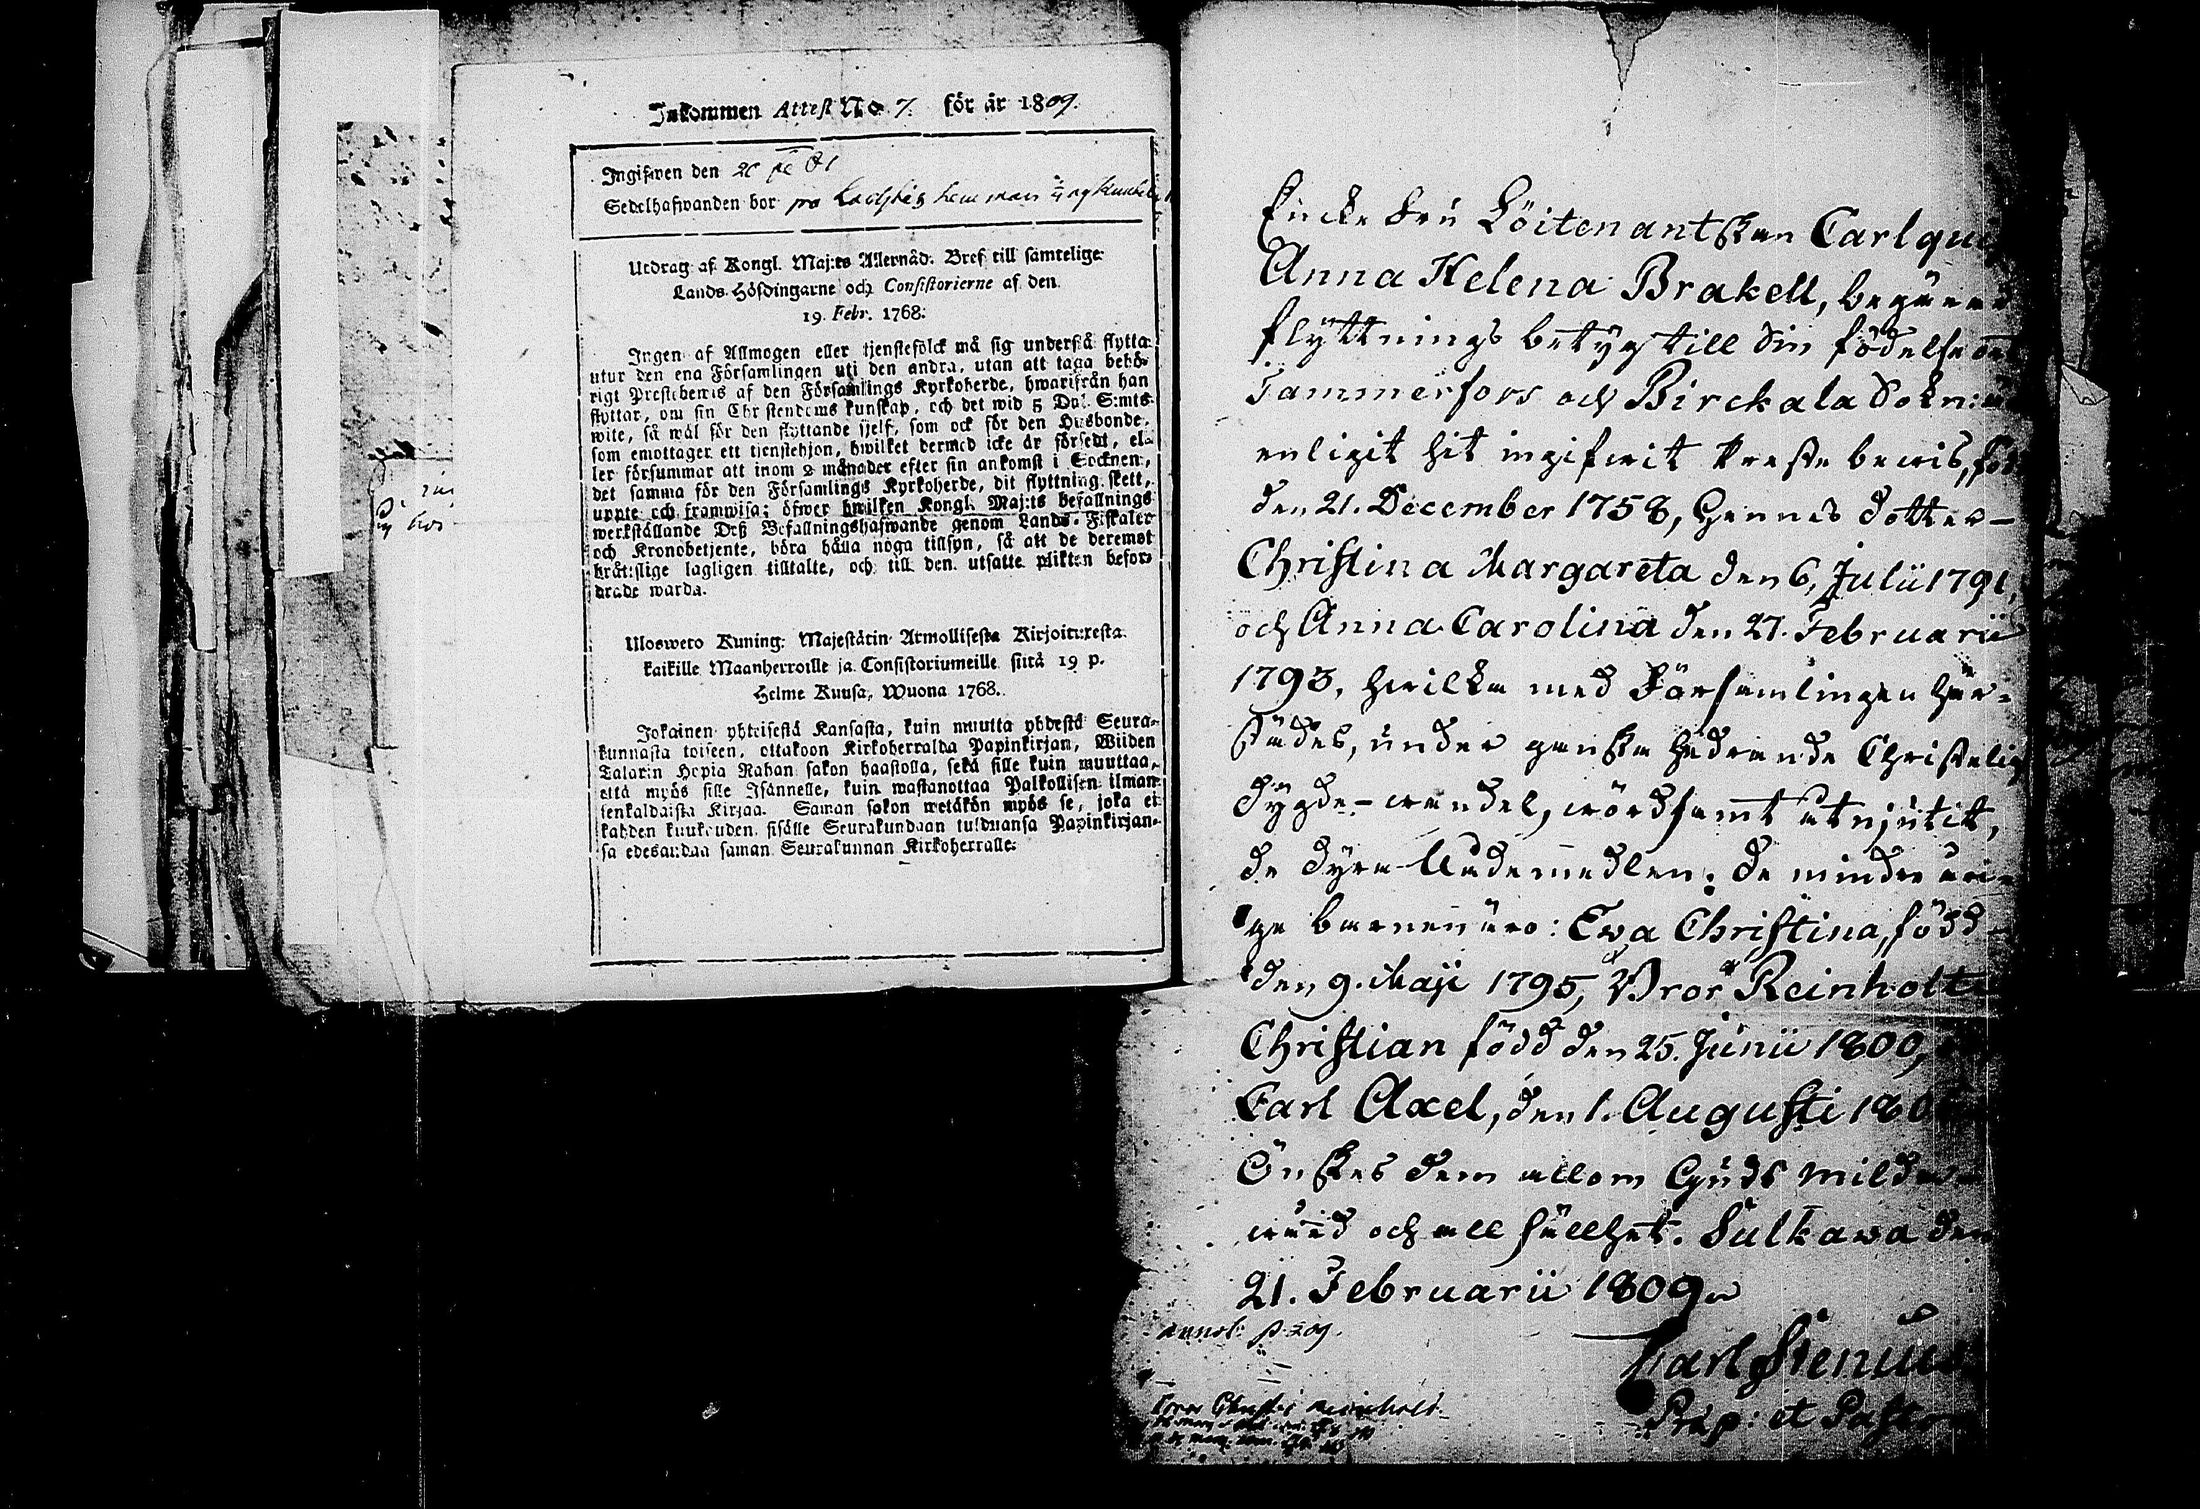 Inkommen Attest No 7. för år 1809.
Ingifwen den 20
Sedelhafwanden bor på hemman
Utdrag af Kongl. Maj:ts Allernåd. Bref till samtelige
Lands-Höfdingarne och Consistorierne af den
19. Febr. 1768:
Ingen af Allmogen eller tjenstefolck må sig understå flytta
utur den ena Församlingen uti den andra, utan att taga behö-
rigt Prestebewis af den Församlings Kyrkoherde, hwarifrån han
flyttar, om sin Christendoms kunskap, och det wid 5 Dal. S:mts
wite, så wäl för den flyttande sjelf, som ock för den Husbonde,
som emottager ett tjenstehjon, hwilket dermed icke är försedt, el-
ler försummar att inom 2 månader efter sin ankomst i Socknen,
det samma för den Församlings Kyrkoherde, dit flyttning skett,
uppte och framwisa; öfwer hwilken Kongl. Maj:ts befallnings
werkställande Deß Befallningshafwande genom Lands-Fiskaler
och Kronobetjente, böra hålla noga tillsyn, så att de deremot
bråtslige lagligen tilltalte, och till den utsatte plikten befor-
drade warda.
Uloswero Kuning: Majestätin Armollisesta Kirjoituxesta
kaikille Maanherroille ja Consistoriumeille siitä 19 p.
Helme Kuusa, Wuona 1768.
Jokainen yhteisestä Kansasta, kuin muutta yhdestä Seura-
kunnasta toiseen, ottakoon Kirkoherralda Papinkirjan, Wiiden
Talarin Hopia Rahan sakon haastolla, sekä sille kuin muuttaa,
että myös sille Isännelle, kuin wastanottaa Palkollisen ilman
senkaldaista Kirjaa. Saman sakon wetäkön myös se, joka ei
kahden kuukauden sisälle Seurakundaan tulduansa Papinkirjan-
sa edesandaa saman Seurakunnan Kirkoherralle.
Encke Fru Löitenantskan Carlqui
Anna Helena Brakell, begärer
flyttnings betyg till sin födelse
Tammerfors och Birckala Sokn:
enligit hit ingifwit Preste bewis, föd
den 21. December 1758, Hennes dotter
Christina Margareta den 6, Julii 1791,
och Anna Carolina den 27. Februarii
1793, hwilka med Församlingen här-
städes, under ganska hedrande Christelig
dygde-wandel, wördsamt åtnjutit,
de dyra Nådemedlen; de mindre åri-
ge barnen äro: Ewa Christina, född
den 9. Maji 1795, Bror Reinholt
Christian född den 25. Junii 1800,
Carl Axel, den 1. Augusti 180
Önskes dem allom Guds milda
wård och all sällhet. Sulkawa den
21. Februarii 1809
annot: p. 209.
Carl Stenius
Præp: et Pastor
Bror Christi Reinholt